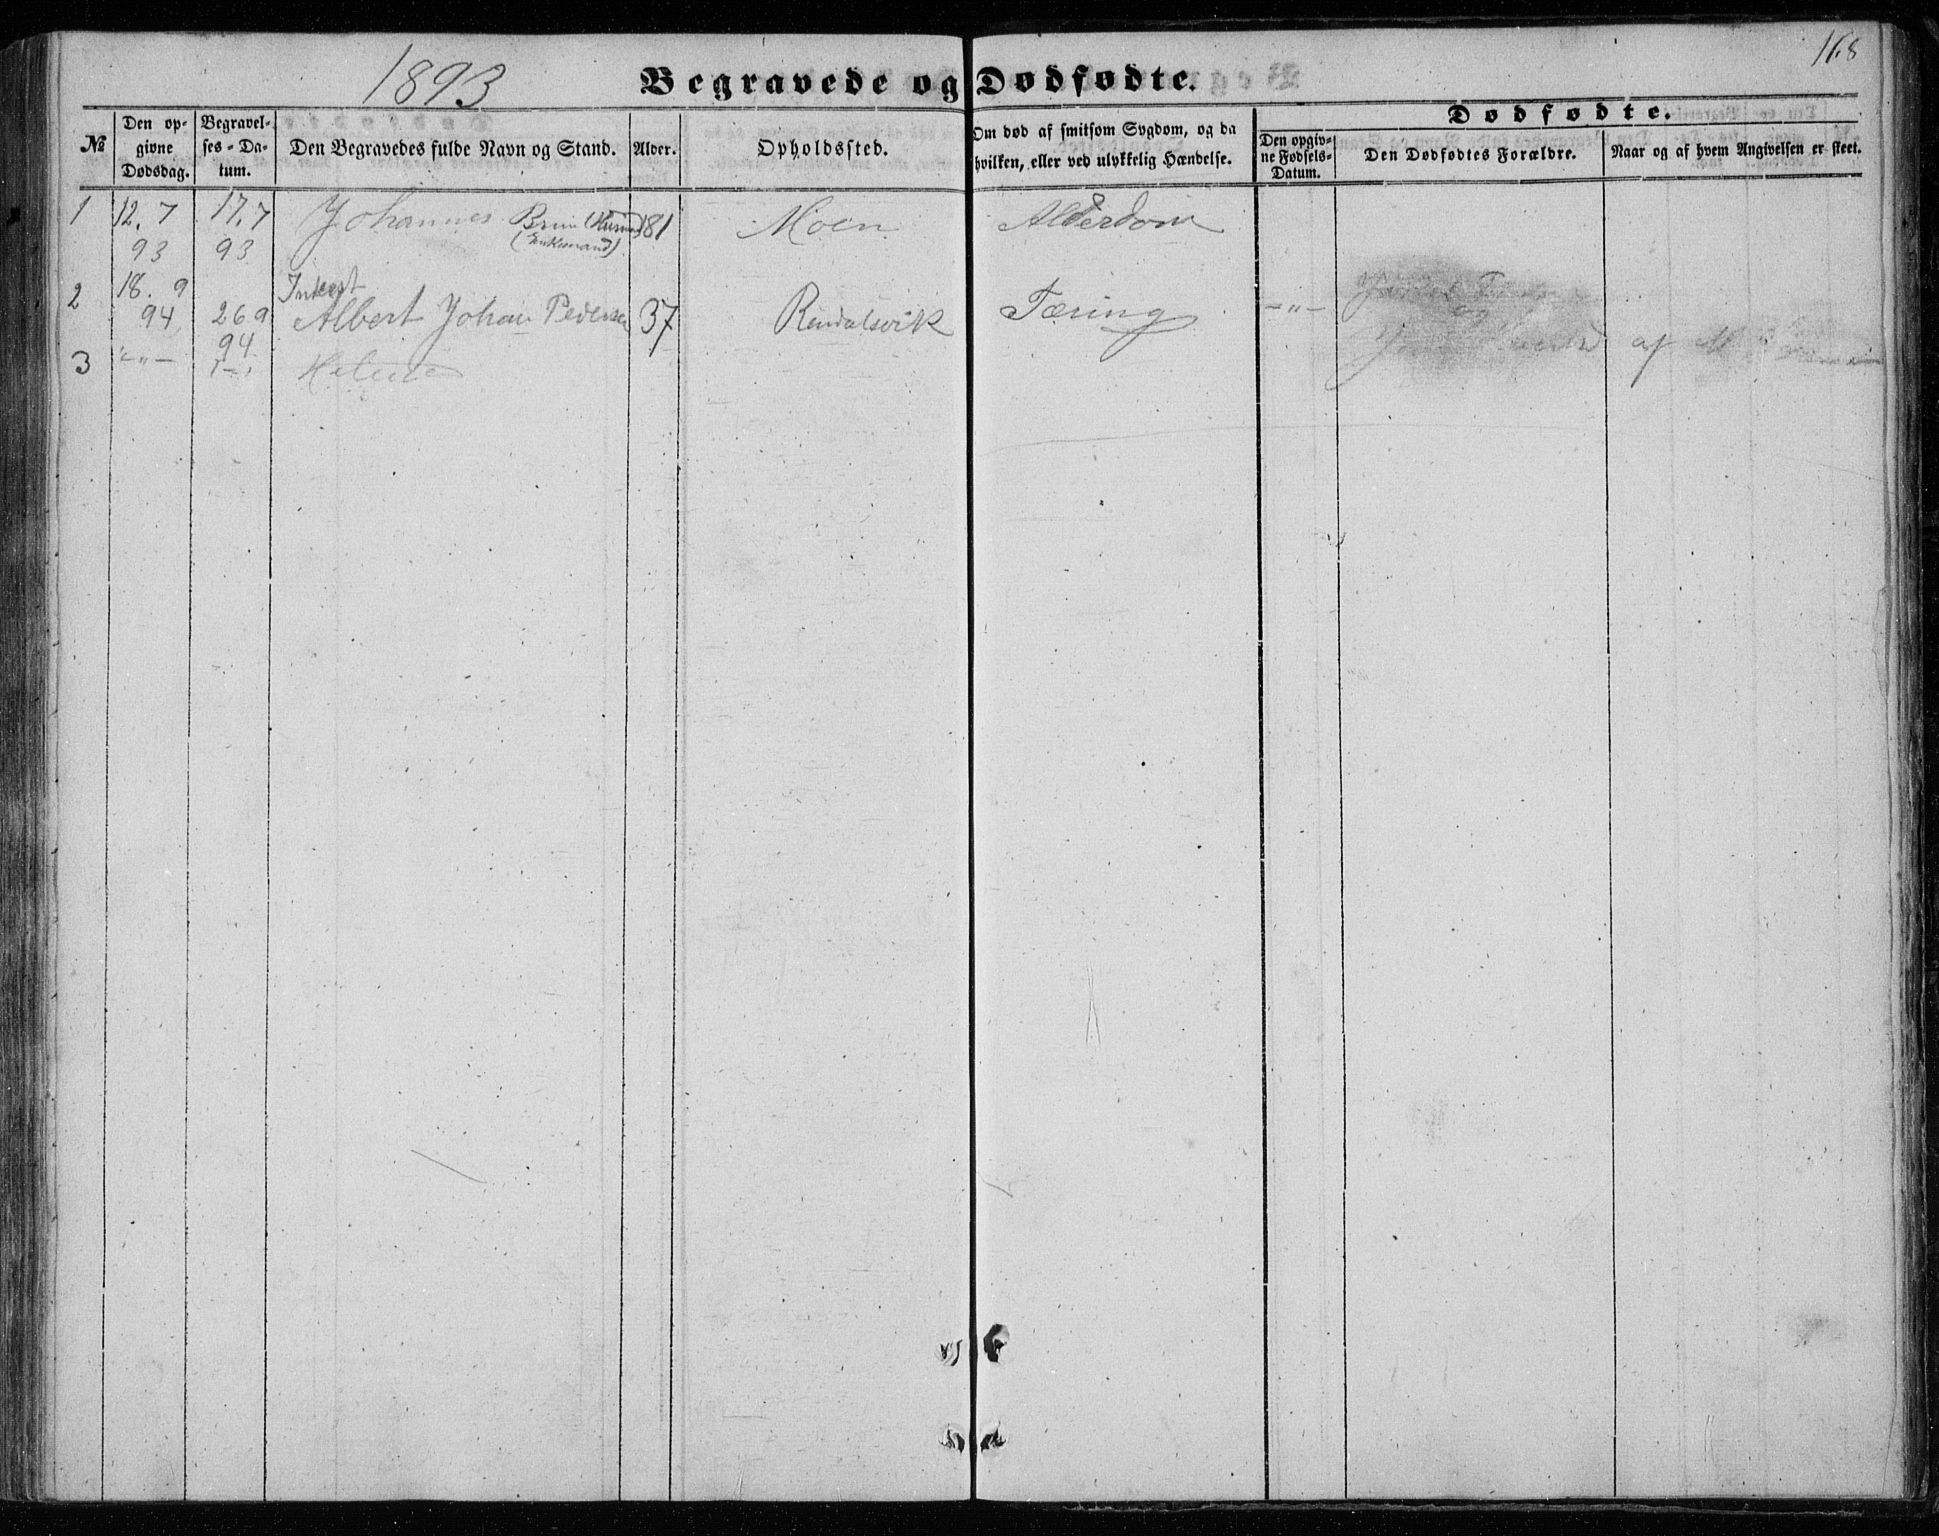 168
1893
Begravede og Dødfødte.
№
Den opgivne Dødsdag.
Begravelses-Datum.
Den Begravedes fulde Navn og Stand.
Alder.
Opholdssted.
Om død af smitsom Sygdom, og da hvilken, eller ved ulykkelig Hændelse.
Dødfødte.
Den opgivne Fødsels-Datum.
Den Dødfødtes Forældre.
Naar og af hvem Angivelsen er skeet.
1 12. 7 93 17. 7 93 Johannes (Enkemand) 81 Moen Alderdom
2 18. 9 94 26 9 94 Albert Johan Pedersen 37 Rendalsvik Tæring -"-
3 -"- af